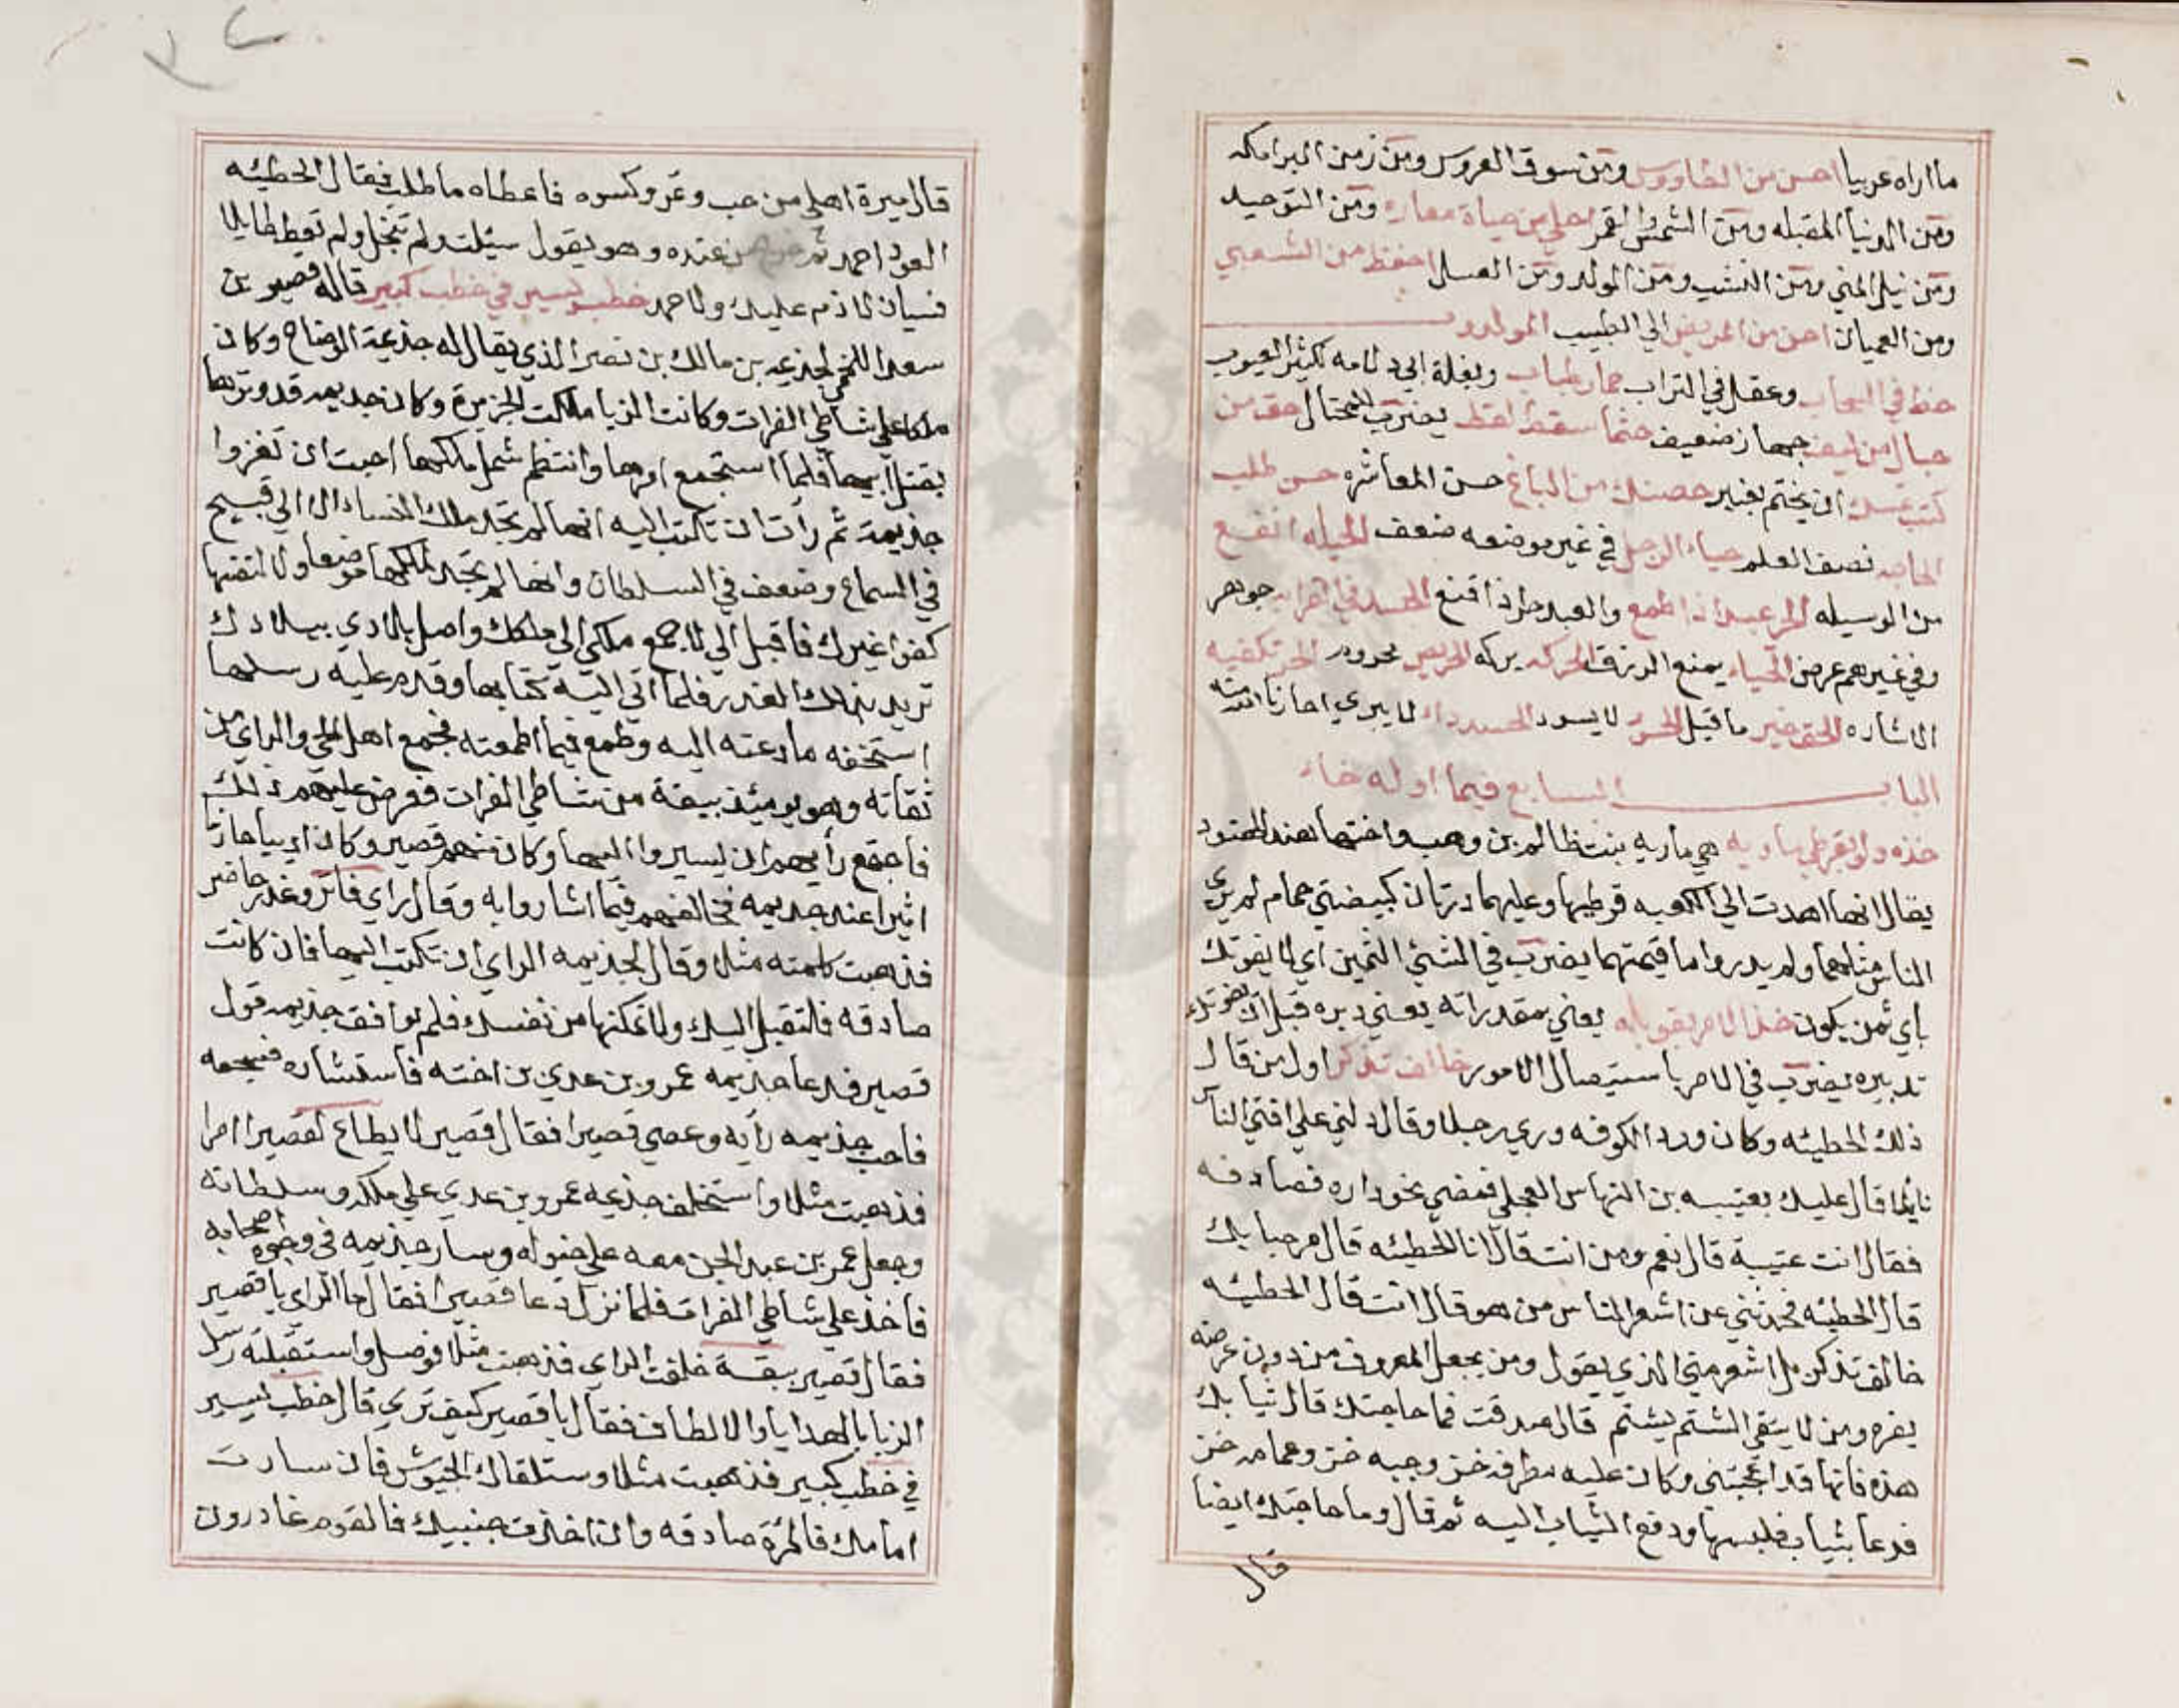 ما اراه عربيا احسن من الطاووس ومن سوق العروس ومن زمن البرامكه
ومن الدنيا المقبله ومن الشمس والقمر احلى من حياة معاره ومن التوحيد
ومن نيل المني ومن النشب ومن الولد ومن العسل احفظ من الشعبي
ومن العميان احن من المريض الي الطبيب المولدون
حظ في السحاب وعقل في التراب حمار طياب وبغلة ابي دلامه لكثير العيوب
حبال من ليف جهاز ضعيف حيثما سقط لقط يضرب للمحتال حق من
كتب بمسك ان يختم بعنبر حصنك من الباغ حسن المعاشره حسن طلب
الحاجه نصف العلم حياء الرجل في غير موضعه ضعف الحيله انفع
من الوسيله الحر عبد اذا طمع والعبد حر اذا قنع الحسد في القرابه جوهر
وفي غيرهم عرض الحياء يمنع الرزق الحركه بركه الحريص محروم الحر تكفيه
الاشاره الحق خير ما قيل الحسود لا يسود الحسد داء لا يبري اجارنا الله منه
الباب السابع فيما اوله خاء
خذه ولو بقرطي ماريه هي ماريه بنت ظالم بن وهب واختها هند الهنود
يقال انها اهدت الي الكعبه قرطيها وعليهما درتان كبيضتي حمام لم يري
الناس مثلهما ولم يدروا ما قيمتهما يضرب في الشئ الثمين اي لا يفوتك
باي ثمن يكون خذ الامر بقوابله يعني مقدماته يعني دبره قبل ان يفوتك
تدبيره يضرب في الامر باستيصال الامور خالف تذكر اول من قال
ذلك الحطيئه وكان ورد الكوفه وري رجلا وقال دلني علي افتي الناس
نايلا قال عليك بعتيبه بن النهاس العجلي فمضي نحو داره فصادفه
فقال انت عتيبة قال نعم ومن انت قال انا الحطيئه قال مرحبا بك
قال الحطيئه فحدثني عن اشعر الناس من هو قال انت قال الحطيئه
خالف تذكر بل اشعر مني الذي يقول ومن يجعل المعروف من دون عرضه
يفره ومن لا يتقي الشتم يشتم قال صدقت فما حاجتك قال ثيابك
هذه فانها قد اعجبتني وكان عليه مطرف خز وجبه خز وعمامه خز
فدعا بثياب فلبسها ودفع الثياب اليه ثم قال وما حاجتك ايضا
قال
قال ميرة اهلي من حب وتمر وكسوه فاعطاه ما طلب فقال الحطيئه
العود احمد ثم خرج من عنده وهو يقول سيلت ولم تبخل ولم تعط طايلا
فسيان لا ذم عليك ولا حمد خطب يسير في خطب كبير قاله قصير بن
سعد اللخمي لجذيمه بن مالك بن نصر الذي يقال له جذيمة الوضاح وكان
ملكا علي شاطي الفرات وكانت الزبا ملكت الجزيرة وكان جديمه قد وترها
بقتل ابيها فلما استجمع امرها وانتظم شمل ملكها احبت ان تغزوا
جذيمة ثم رأت ان تكتب اليه انها لم تجد ملك النساء الا الي قبيح
في السماع وضعف في السلطان وانها لم تجد لملكها موضعا ولا لنفسها
كفؤا غيرك فاقبل الي لاجمع ملكي الي ملكك واصل بلادي ببلادك
تريد بذلك الغدر فلما اتي اليه كتابها وقدم عليه رسلها
استخفه ما دعته اليه وطمع فيما اطمعته فجمع اهل الحي والراي من
ثقاته وهو يومئذ ببقة من شاطي الفرات فعرض عليهم ذلك
فاجتمع رأيهم ان يسيروا اليها وكان منهم قصير وكان اديبا حازما
اثيرا عند جديمه فخالفهم فيما اشاروا به وقال راي فاتر وغدر حاضر
فذهبت كلمته مثلا وقال لجذيمه الراي ان تكتب اليها فان كانت
صادقه فلتقبل اليك ولا تمكنها من نفسك فلم يوافق جذيمه قول
قصير فدعا جذيمه عمرو بن عدي بن اخته فاستشاره فشجعه
فاحب جذيمه رأيه وعصي قصيرا فقال قصير لا يطاع لقصير امرا
فذهبت مثلا واستخلف جذيمه عمرو بن عدي علي ملكه وسلطانه
وجعل عمر بن عبد الجن معه علي خيوله وسار جذيمه في وجوه اصحابه
فاخذ علي شاطي الفرات فلما نزل دعا قصيرا فقال ما الراي يا قصير
فقال قصير ببقة خلفت الراي فذهبت مثلا فوصل واستقبلته رسل
الزبا بالهدايا والالطاف فقال يا قصير كيف تري قال خطب يسير
في خطب كبير فذهبت مثلا وستلقاك الجيوش فان سارت
امامك فالمرة صادقه وان اخذت جنبيك فالقوم غادرون